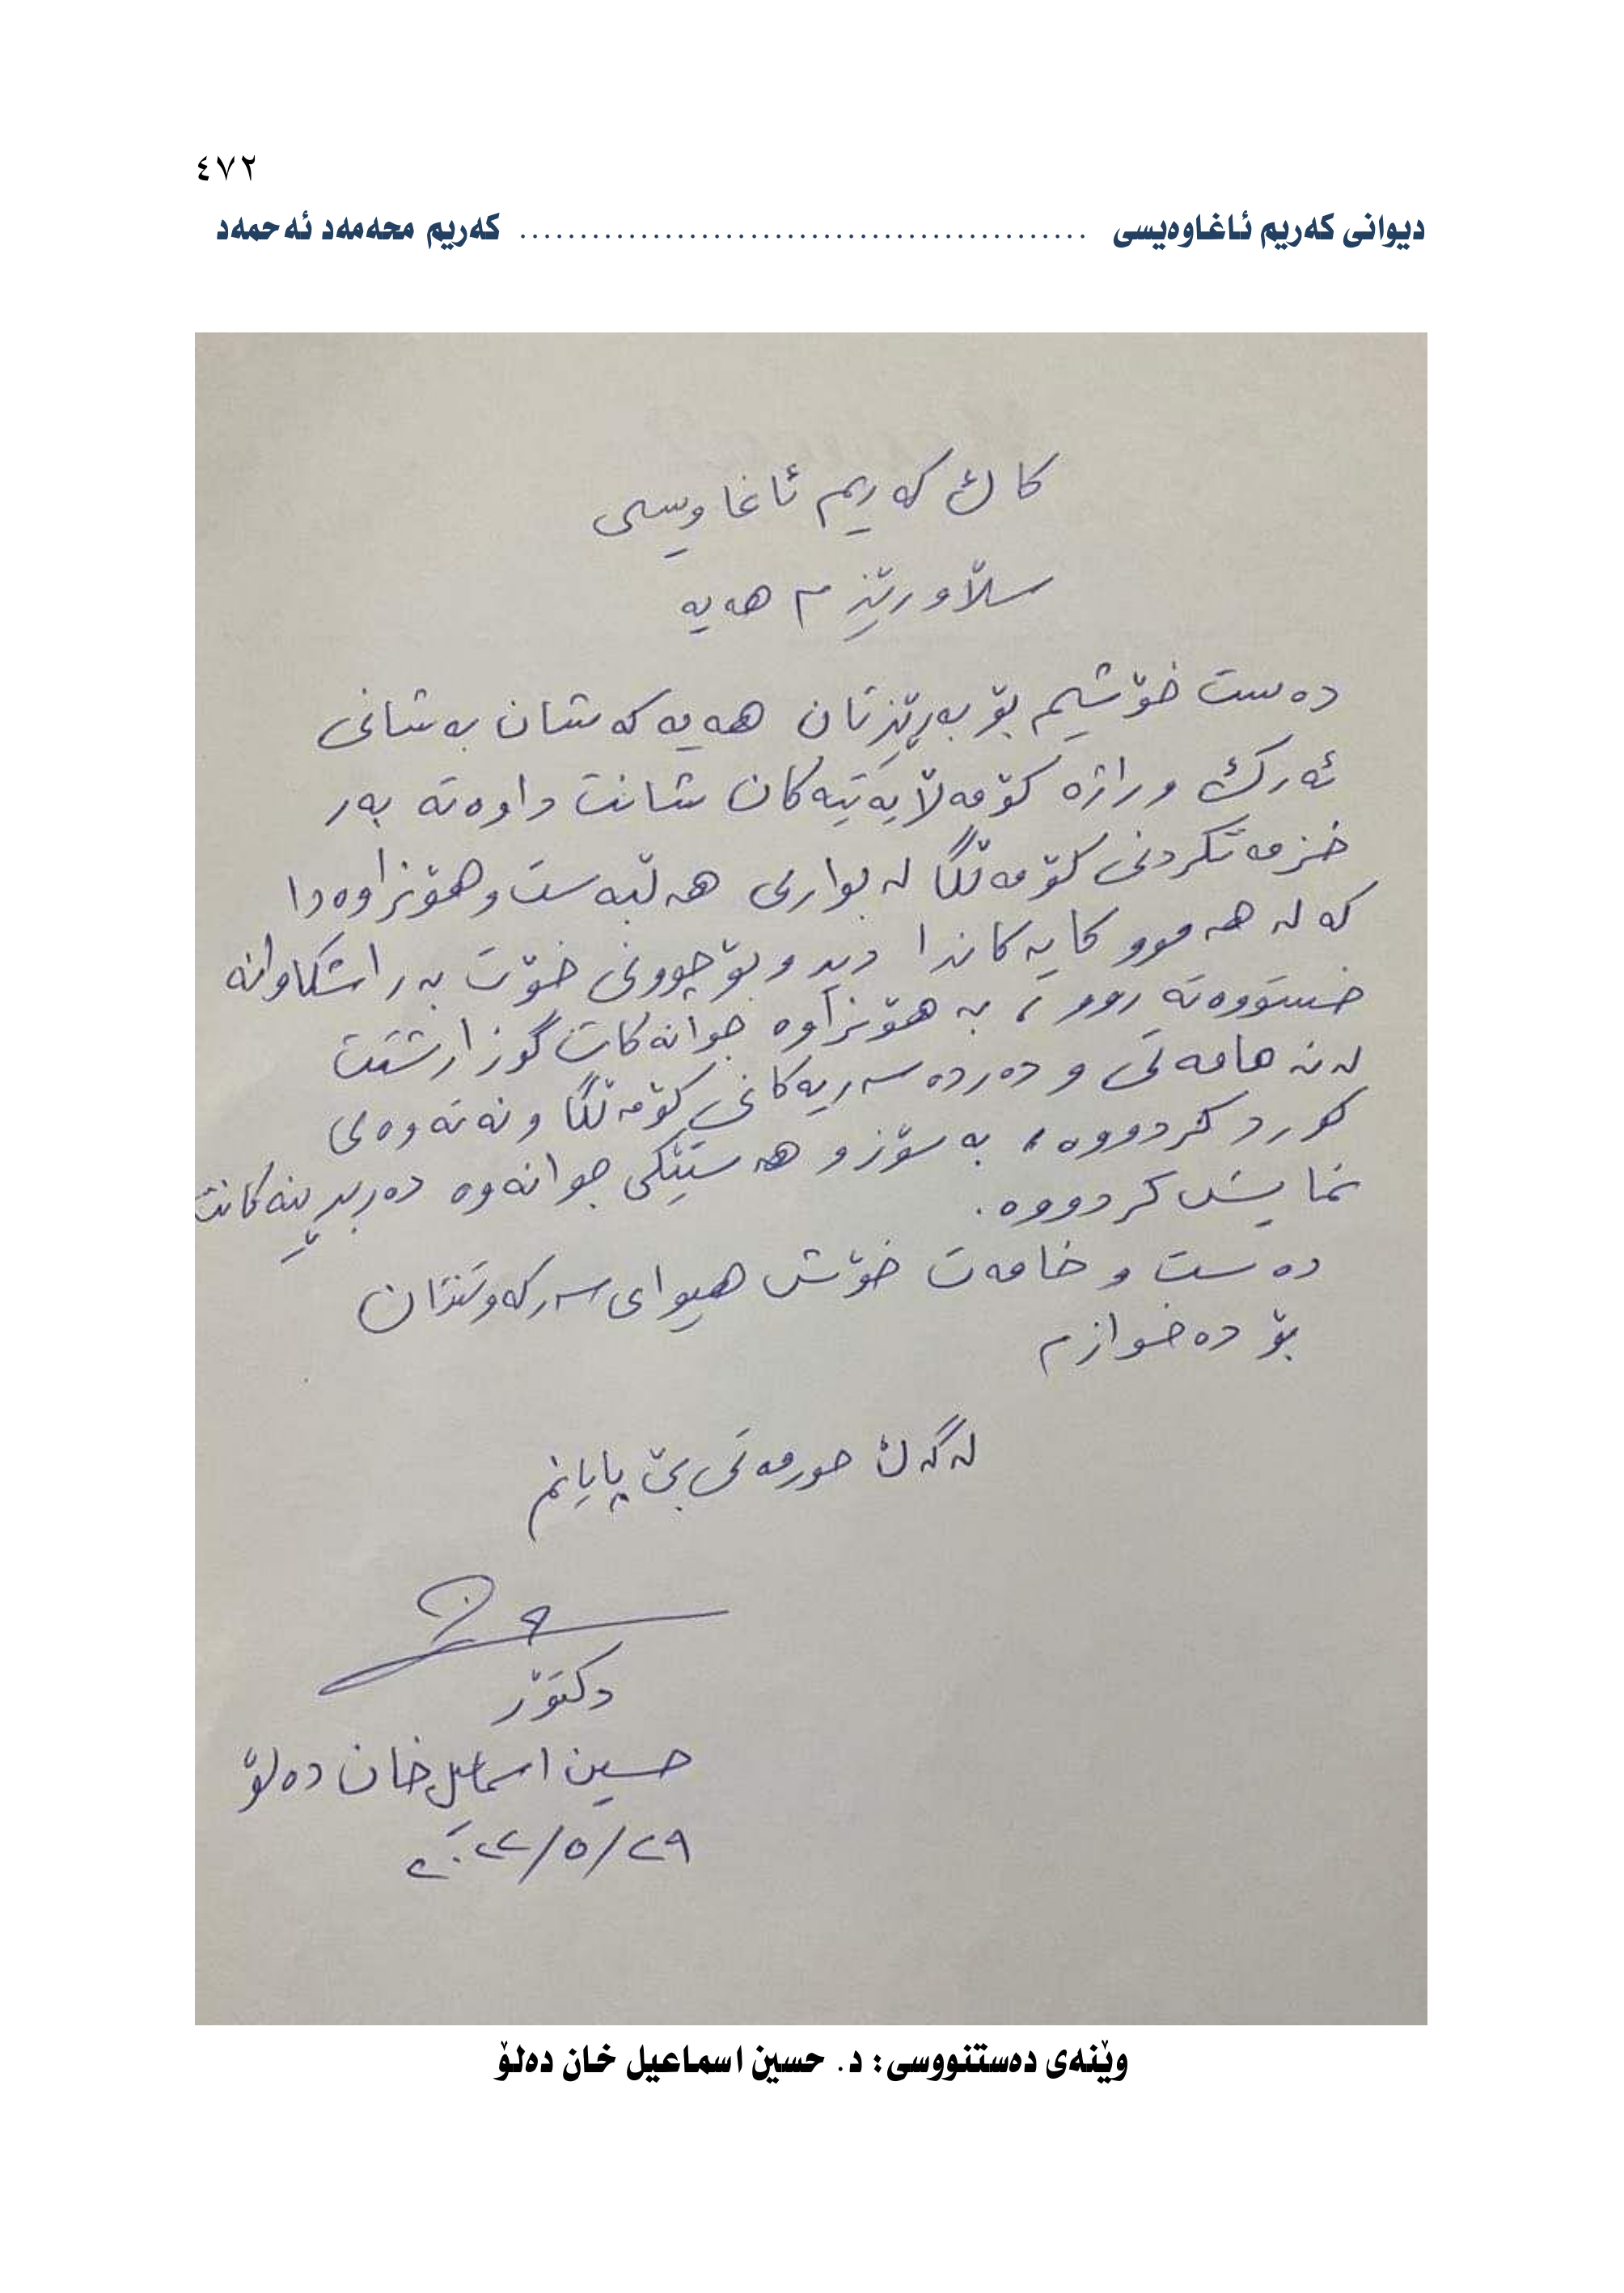 ٤٧٢
دیوانی کەریم ئاغاوەیسی ............................................... کەریم محەمەد ئەحمەد
کاك کەریم ئاغاوەیسی
سڵاو ڕێزم هەیە
دەست خۆشیم بۆ بەڕێزتان هەیە کە شان بەشانی
ئەرك وراژە کۆمەڵایەتیەکان شانت داوەتە بەر
خزمەتکردنی کۆمەڵگا لە بواری هەڵبەست وهۆنراوەدا
کە لە هەموو کایەکاندا دید و بۆچوونی خۆت بەراشکاوانە
خستووەتە روو، بە هۆنراوە جوانەکانت گوزارشتت
لەنەهامەتی و دەردەسەریەکانی کۆمەڵگا ونەتەوەی
کورد کردووە، بەسۆزو هەستێکی جوانەوە دەربڕینەکانت
نمایش کردووە.
دەست و خامەت خۆش هیوای سەرکەوتنتان
بۆ دەخوازم
لەگەڵ حورمەتی بێ پایانم
دکتۆر
حسین اسماعیل خان دەلۆ
٢٠٢٢/٥/٢٩
وێنەی دەستنووسی: د. حسین اسماعیل خان دەلۆ